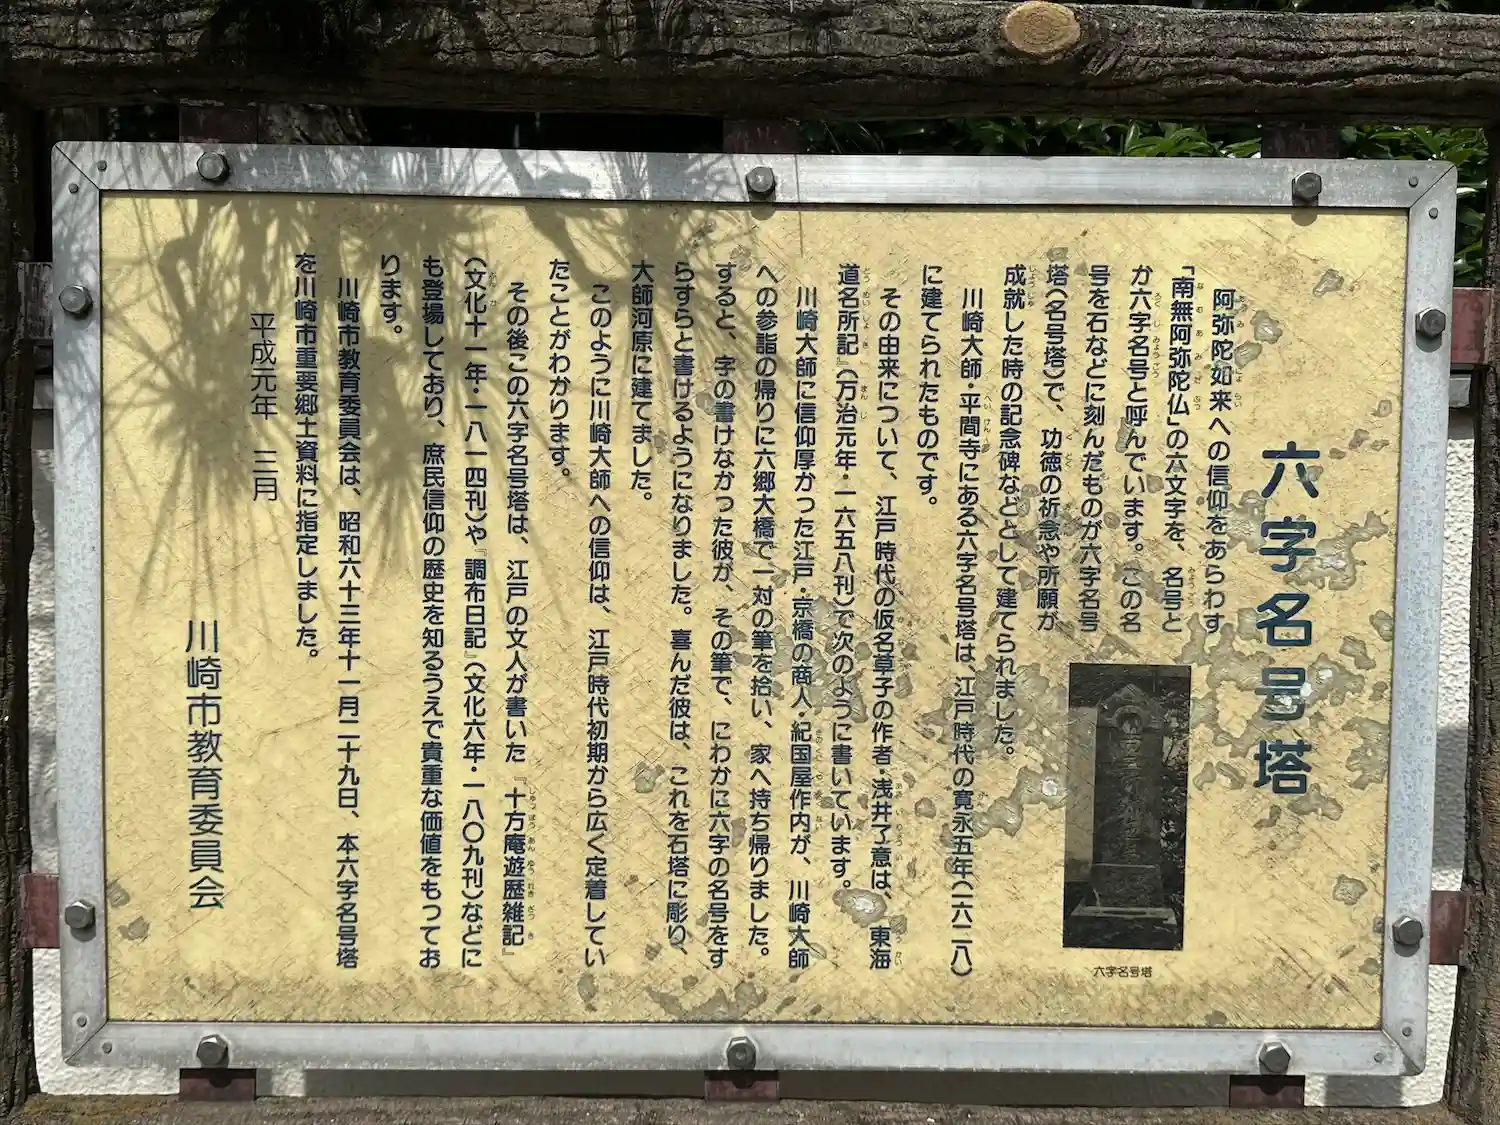 六字名号塔
阿弥陀如来への信仰をあらわす
「南無阿弥陀仏」の六文字を、名号と
か六字名号と呼んでいます。この名
号を石などに刻んだものが六字名号
塔(名号塔)で、功徳の祈念や所願が
成就した時の記念碑などとして建てられました。
川崎大師・平間寺にある六字名号塔は、江戸時代の寛永五年(一六二八)
に建てられたものです。
その由来について、江戸時代の仮名草子の作者・浅井了意は、東海
道名所記』(万治元年・一六五八刊)で次のように書いています。
川崎大師に信仰厚かった江戸・京橋の商人・紀国屋作内が、川崎大師
への参詣の帰りに六郷大橋で一対の筆を拾い、家へ持ち帰りました。
すると、字の書けなかった彼が、その筆で、にわかに六字の名号をす
らすらと書けるようになりました。喜んだ彼は、これを石塔に彫り、
大師河原に建てました。
このように川崎大師への信仰は、江戸時代初期から広く定着してい
たことがわかります。
その後この六字名号塔は、江戸の文人が書いた『十方庵遊歴雑記』
(文化十一年・一八一四刊)や『調布日記』(文化六年・一八〇九刊)などに
も登場しており、庶民信仰の歴史を知るうえで貴重な価値をもってお
ります。
川崎市教育委員会は、昭和六十三年十一月二十九日、本六字名号塔
を川崎市重要郷土資料に指定しました。
平成元年 三月
川崎市教育委員会
六字名号塔